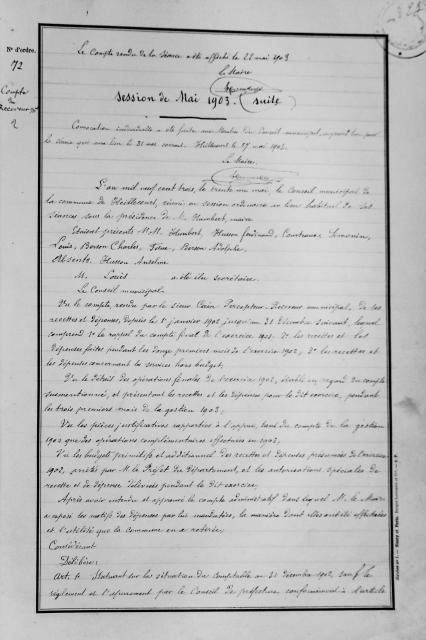 N° d'ordre.
72
Compte
du
Receveur
2
Le Compte rendu de la Séance a été affiché le 22 mai 1903
Le Maire
Session de Mai 1903. (suite)
Convocation individuelle a été faite aux Membres du Conseil municipal, aujourd'hui pour
la séance qui aura lieu le 31 mai courant. 27 mai 1903.
Le Maire,
L'an mil neuf cent trois, le trente un mai, le Conseil municipal de
la commune de réuni en session ordinaire au lieu habituel de ses
séances, sous la présidence de M. Humbert, maire
Etaient présents M.M. Humbert, Husson Ferdinand, Courteaux, Simonin,
Louis, Berson Charles, Berson Adolphe.
Absents. Husson Anselme
M. Louis a été élu secrétaire.
Le Conseil municipal.
Vu le compte, rendu par le sieur Percepteur-Receveur municipal. De ses
recettes et dépenses, depuis le 1er janvier 1902 jusqu'au 31 décembre suivant, lequel
comprend 1° le rappel du compte final de l'exercice 1901. 2° les recettes et les
dépenses faites pendant les douze premiers mois de l'exercice 1902; 3° les recettes et
les dépenses concernant les services hors budget;
Vu le détail des opérations finales de l'exercice 1902, établi en regard du compte
susmentionné, et présentant les recettes et les dépenses pour le dit exercice, pendant
les trois premiers mois de la gestion 1903;
Vu les pièces justificatives rapportées à l'appui, tant du compte de la gestion
1902 que des opérations complémentaires effectuées en 1903.
Vu les budgets primitifs et additionnel des recettes et dépenses présumées de l'exercice
1902, arrêtés par M. le Préfet du Département, et les autorisations spéciales de
recette et de dépense délivrées pendant le dit exercice;
Après avoir entendu et approuvé le compte administratif dans lequel M. le Maire
a exposé les motifs des dépenses par lui mandatées, la manière dont elles ont été effectuées
et l'utilité que la commune en a retirée;
Considérant
Délibère:
Art. 1er Statuant sur la situation du comptable au 31 décembre 1902, sauf le
règlement et l'apurement par le Conseil de préfecture, conformément à l'article